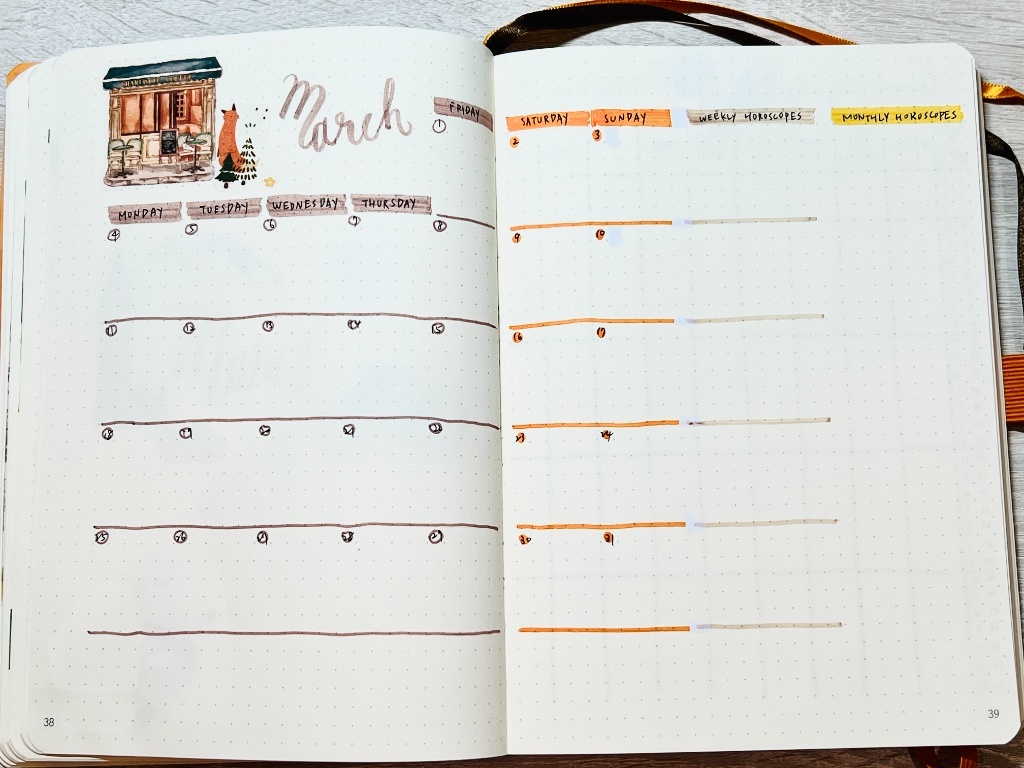 March
FRIDAY
1
SATURDAY SUNDAY WEEKLY HOROSCOPES MONTHLY HOROSCOPES
2 3
MONDAY TUESDAY WEDNESDAY THURSDAY
4 5 6 7 8
9 10
11 12 13 14 15
16 17
18 19 20 21 22
23 24
25 26 27 28 29
30 31
38
39